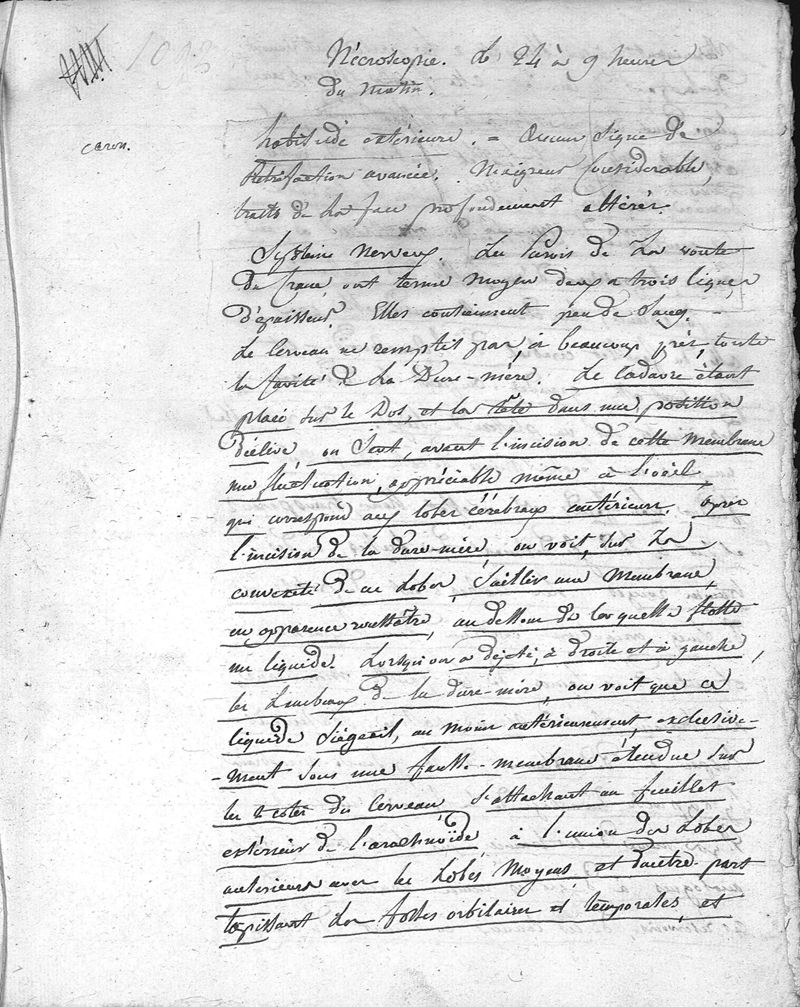 1013
Nécroscopie. Le 24 à 9 heures
du matin.
caron.
habitude extérieure. = Aucun signe de
Putréfaction avancée. Maigreur Considérable,
traits de La face profondement altérés.
Système Nerveux. Les Parois de La voute
du Crane ont terme moyen deux a trois lignes
d'épaisseur. Elles contiennent peu de Sang. -
Le Cerveau ne remplit pas, à beaucoup près, toute
la Cavité de La Dure-mère. Le Cadavre étant
placé sur le Dos et la tête dans une position
déclive on Sent, avant l'incision de cette Membrane
une fluctuation, appréciable même à l'oeil,
qui correspond aux lobes cérébraux antérieurs. après
l'incision de la dure-mère, on voit, sur La
convexité de ces Lobes, Saillir une Membrane,
en apparence roussâtre, au dessous de laquelle flotte
un liquide. Lorsqu'on a dejeté, à droite et à gauche,
les Lambeaux de la dure-mère, on voit que ce
liquide Siégeait, au moins antérieurement, exclusive-
-ment sous une fausse-membrane étendue sur
les 2 cotés du Cerveau S'attachant au feuillet
extérieur de l'arachnoïde à l'union des Lobes
antérieurs avec les Lobes Moyens, et d'autre part
tapissant Les fosses orbitaires et temporales, et